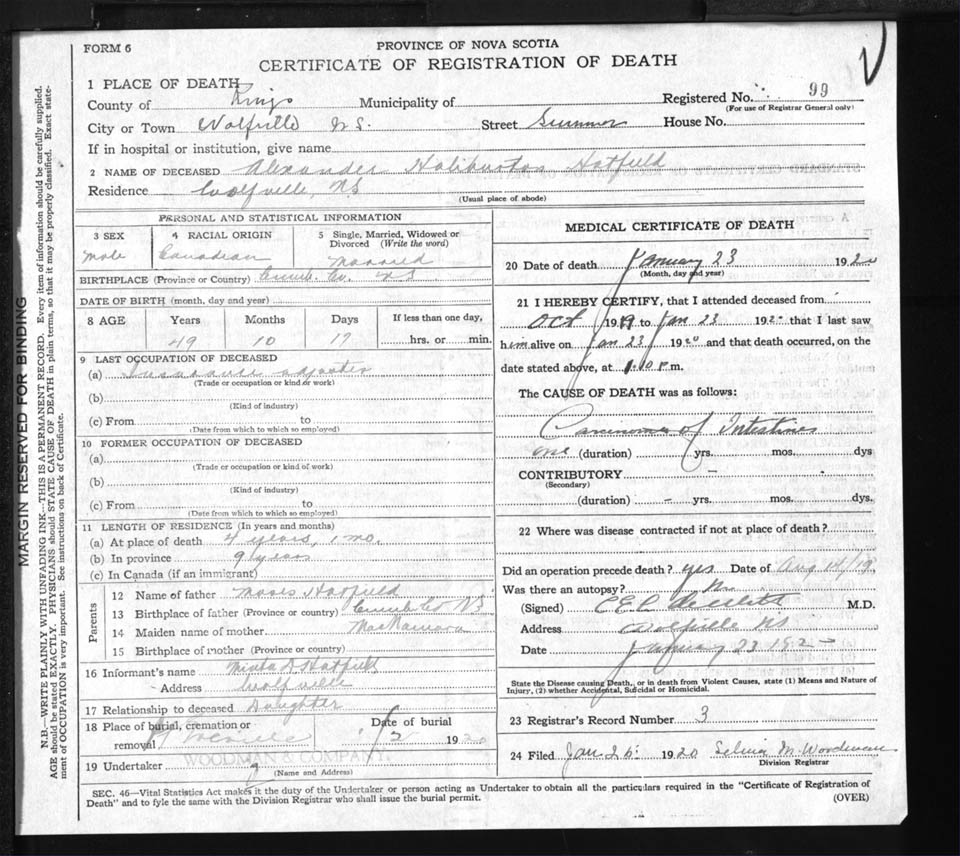 FORM 6
PROVINCE OF NOVA SCOTIA
CERTIFICATE OF REGISTRATION OF DEATH
1 PLACE OF DEATH
Registered No. 99
(For use of Registrar General only)
County of Kings Municipality of
City or Town Wolfville N.S. Street Summer House No.
If in hospital or institution, give name
2 NAME OF DECEASED Alexander Haliburton Hatfield
Residence Wolfville, NS
(Usual place of abode)
PERSONAL AND STATISTICAL INFORMATION
3 SEX 4 RACIAL ORIGIN 5 Single, Married, Widowed or Divorced (Write the word)
male Canadian Married
BIRTHPLACE (Province or Country) Cumb. Co. NS
DATE OF BIRTH (month, day and year)
8 AGE Years Months Days If less than one day,
49 10 17 hrs. or min.
9 LAST OCCUPATION OF DECEASED
(a) Insurance adjuster
(Trade or occupation or kind or work)
(b)
(Kind of industry)
(c) From to
(Date from which to which so employed)
10 FORMER OCCUPATION OF DECEASED
(a)
(Trade or occupation or kind of work)
(b)
(Kind of industry)
(c) From to
(Date from which to which so employed)
11 LENGTH OF RESIDENCE (In years and months)
(a) At place of death 4 years, 1 mo.
(b) In province 9 years
(c) In Canada (if an immigrant)
Parents
12 Name of father Moses Hatfield
13 Birthplace of father (Province or country) Cumb Co NS
14 Maiden name of mother MacNamara
15 Birthplace of mother (Province or country)
16 Informant's name D Hatfield
Address Wolfville
17 Relationship to deceased Daughter
18 Place of burial, cremation or removal Date of burial 192
WOODMAN & COMPANY.
19 Undertaker
(Name and Address)
MEDICAL CERTIFICATE OF DEATH
20 Date of death January 23 1920
(Month, day and year)
21 I HEREBY CERTIFY, that I attended deceased from
Oct 1919 to Jan 23 1920 that I last saw
him alive on Jan 23 1920 and that death occurred, on the
date stated above, at 1.10 P m.
The CAUSE OF DEATH was as follows:
Carcinoma of Intestines
one (duration) yrs. mos. dys
CONTRIBUTORY
(Secondary)
(duration) yrs. mos. dys.
22 Where was disease contracted if not at place of death?
Did an operation precede death? yes Date of Aug 14/19
Was there an autopsy? No
(Signed) M.D.
Address Wolfville NS
Date January 23 192
State the Disease causing Death, or in death from Violent Causes, state (1) Means and Nature of
Injury, (2) whether Accidental, Suicidal or Homicidal.
23 Registrar's Record Number 3
24 Filed Jan. 26 1920 Selina M. Woodman
Division Registrar
SEC. 46—Vital Statistics Act makes it the duty of the Undertaker or person acting as Undertaker to obtain all the particulars required in the "Certificate of Registration of
Death" and to fyle the same with the Division Registrar who shall issue the burial permit.
(OVER)
MARGIN RESERVED FOR BINDING
N.B.—WRITE PLAINLY WITH UNFADING INK—THIS IS A PERMANENT RECORD. Every item of information should be carefully supplied.
AGE should be stated EXACTLY. PHYSICIANS should STATE CAUSE OF DEATH in plain terms, so that it may be properly classified. Exact state-
ment of OCCUPATION is very important. See instructions on back of Certificate.